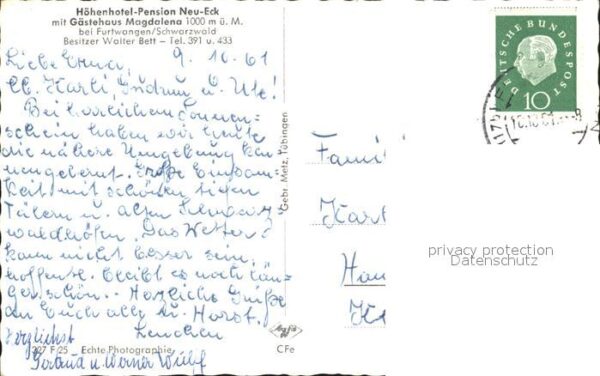 Höhenhotel-Pension Neu-Eck
mit Gästehaus Magdalena 1000 m ü. M.
bei Furtwangen/Schwarzwald
Besitzer Walter Bett - Tel. 391 u. 433
Liebe Erna, 9.10.61
lb. Karli, Gudrun u. Ute!
Bei herrlichem Sonnen=
schein haben wir heute
die nähere Umgebung ken=
nengelernt. Große Einsam=
keit mit schönen tiefen
Tälern u. alten Schwarz=
waldhöfen. Das Wetter
kann nicht besser sein,
hoffentl. bleibt es noch län=
ger schön. Herzliche Grüße
an Euch alle u. Horst.
Lenchen
Herzlichst
227 F/25 Echte Photographie
Gertrud u. Werner
Gebr. Metz, Tübingen
Agfa
C Fe
DEUTSCHE BUNDESPOST
10
Famil
Karl
privacy protection
Datenschutz